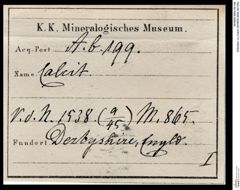 K. K. Mineralogisches Museum.
Acq.-Post A. b. 199.
Name Calcit
V. d. N. 1538 (9/45) M. 865.
Fundort Derbyshire, Engld.
I